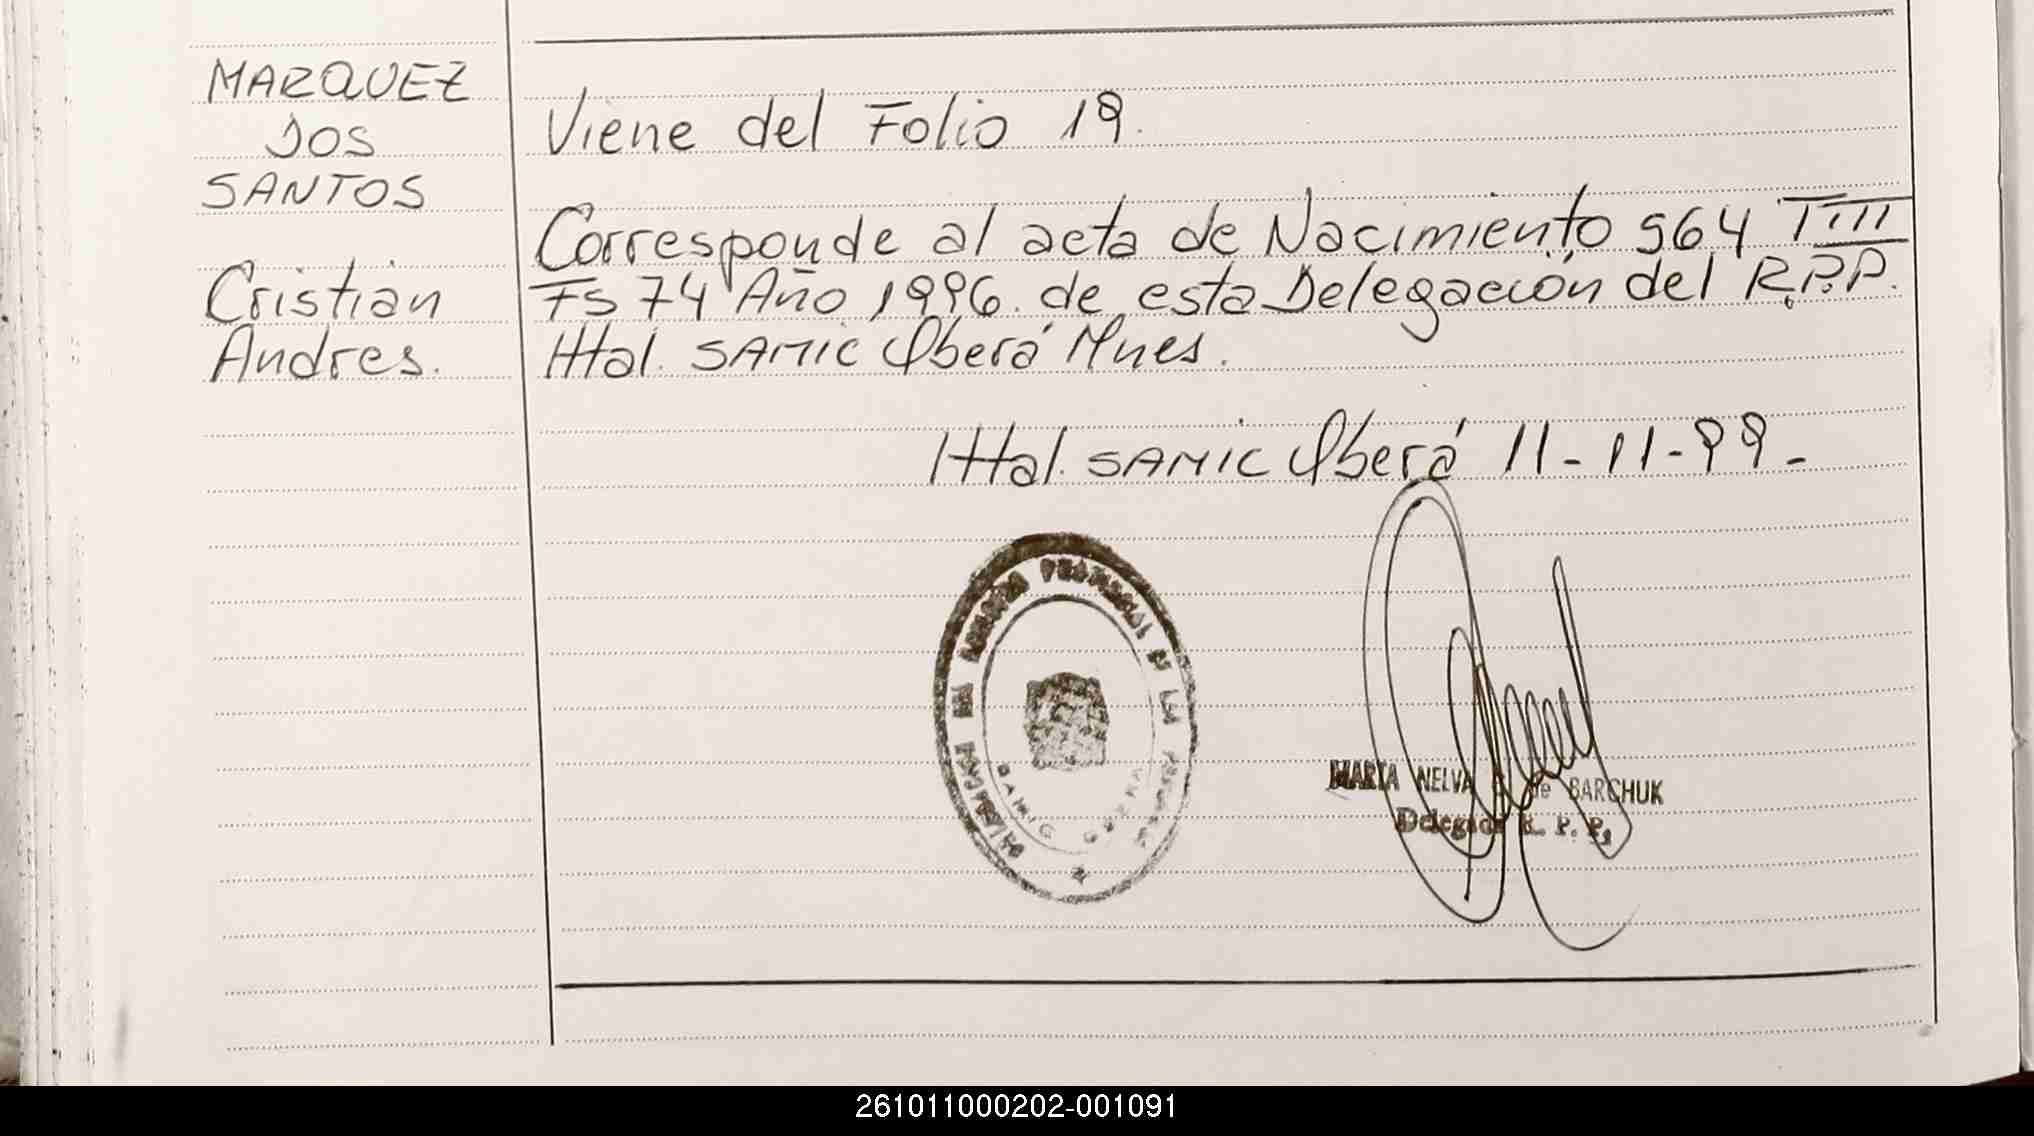 MARQUEZ
DOS
SANTOS
Cristian
Andres.
Viene del Folio 19.
Corresponde al acta de Nacimiento 564 TIII
Fs 74 Año 1996. de esta Delegación del R.P.P.
Htal. SAMIC Oberá Mnes.
Htal. SAMIC Oberá 11-11-99-
SAMIC OBERA
MARIA NELVA de BARCHUK
Delegada R. P. P.
261011000202-001091